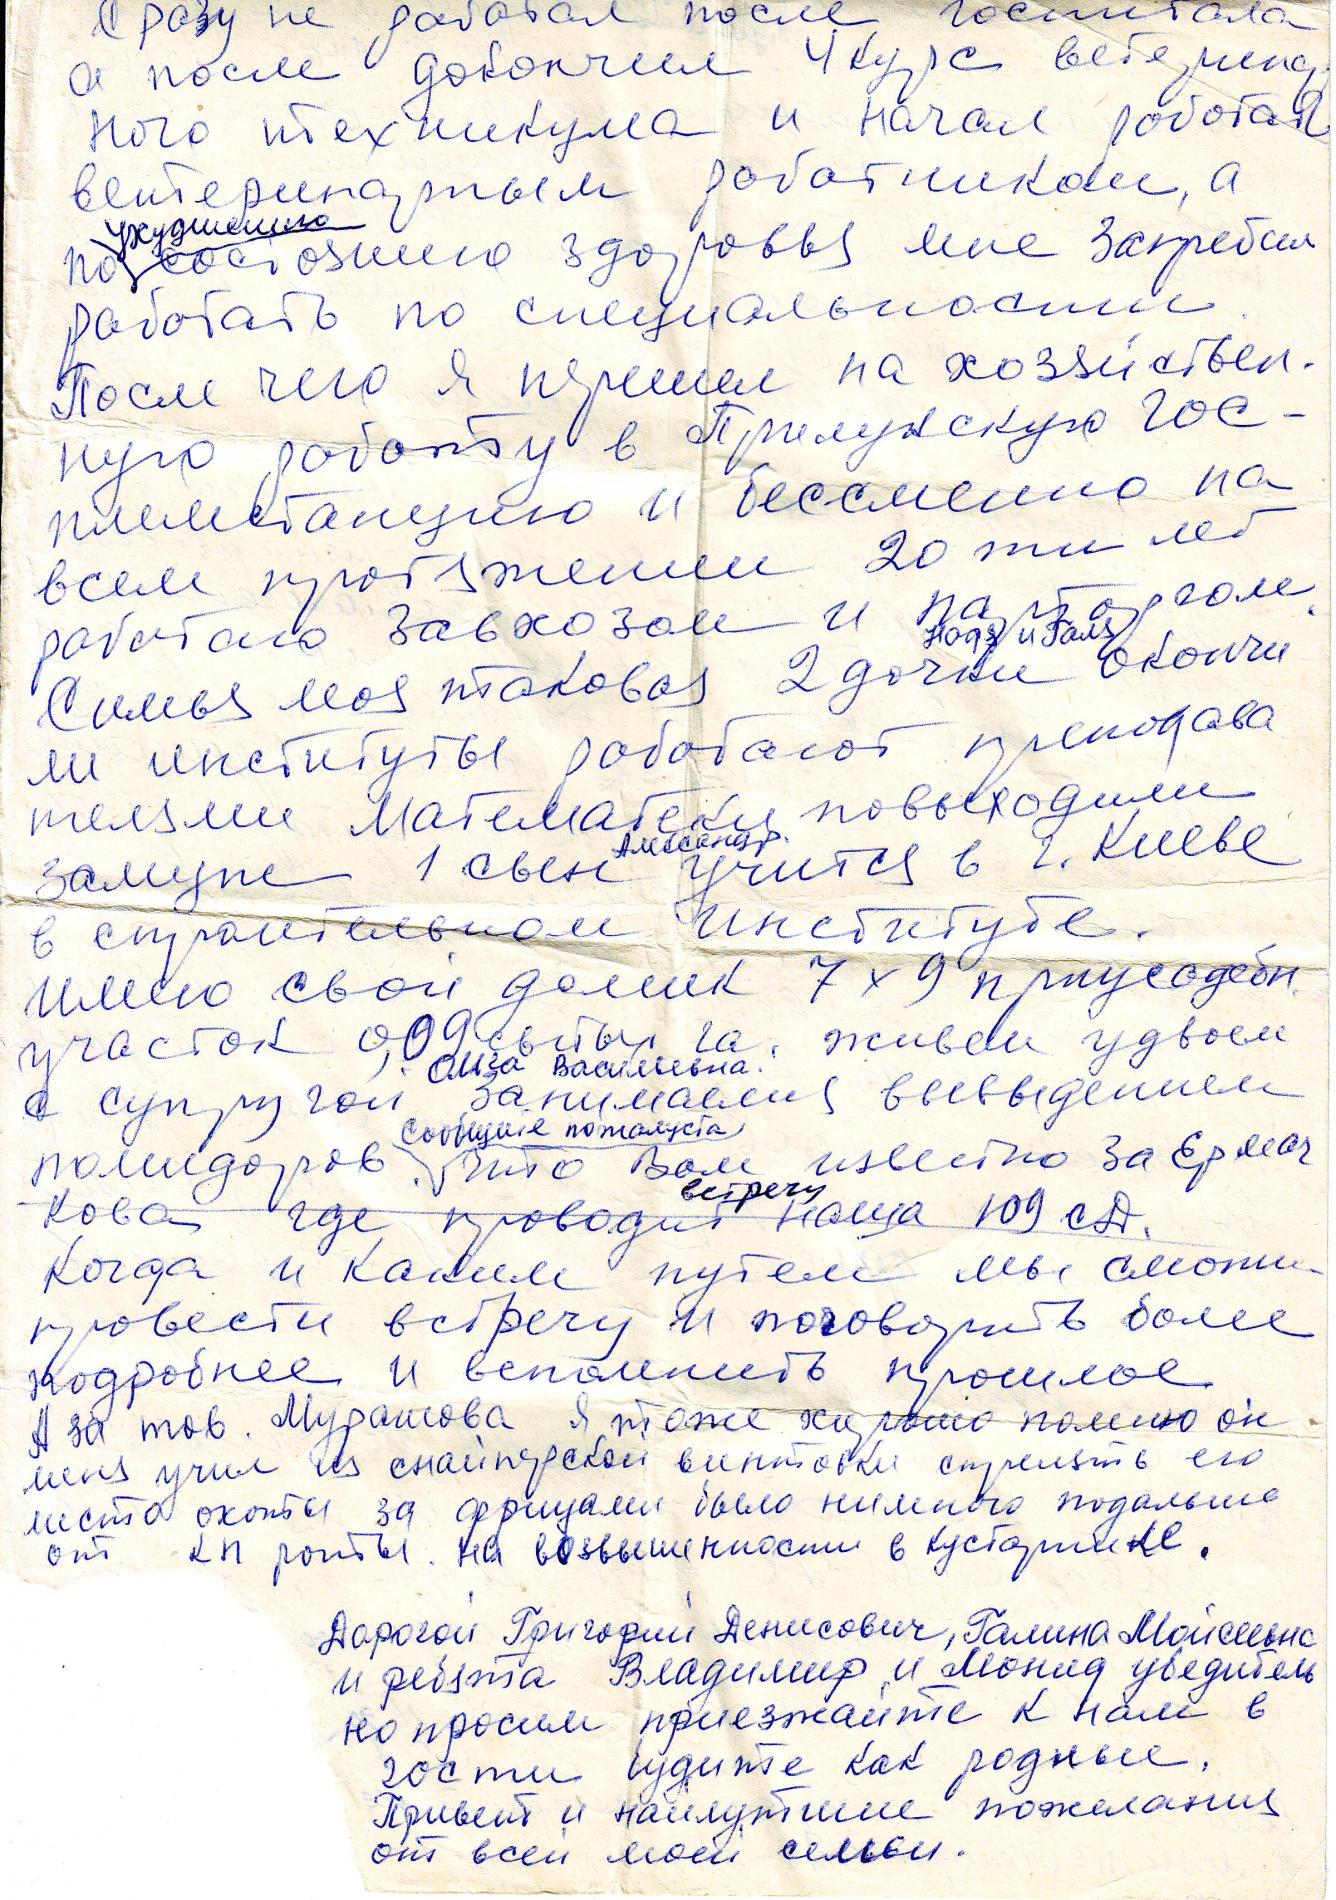 Сразу не работал после госпиталя
а после докончил 4 курс ветеринар
ного техникума и начал работать
ветеринарным работником, а
ухудшению
по состоянию здоровья мне запретили
работать по специальности.
После чего я перешел на хозяйствен-
ную работу в Прилукскую гос-
племстанцию и бессменно на
всем протяжении 20 ти лет
работаю завхозом и парторгом.
Надя и Галя
Симья моя таковая 2 дочки окончи
ли институты работают преподава
телями Математеки повыходили
Александр.
замуж 1 сын учится в г. Киеве
в строительном институте.
Имею свой домик 7 х 9 приусадебн.
участок 0,09 сотых га. живем удвоем
Ольга Васильевна.
с супругой занимаемся вывыдением
сообщите пожалуста
помидоров. Что Вам известно за Ермач
встречу
кова где проводит наша 109 сд.
Когда и каким путем мы сможем
провести встречу и поговорить более
подробнее и вспомнить прошлое
А за тов. Мурашова я тоже хорошо помню он
меня учил из снайперской винтовки стрелять его
место охоты за фрицами было нимного подальше
от КП роты. на возвышенности в кустарнике.
Дорогой Григорий Денисович, Галина Мойсеевна
и ребята Владимир и Монид убедитель
но просим приезжайте к нам в
гости будите как родные.
Привет и наилутшие пожелания
от всей моей семьи.